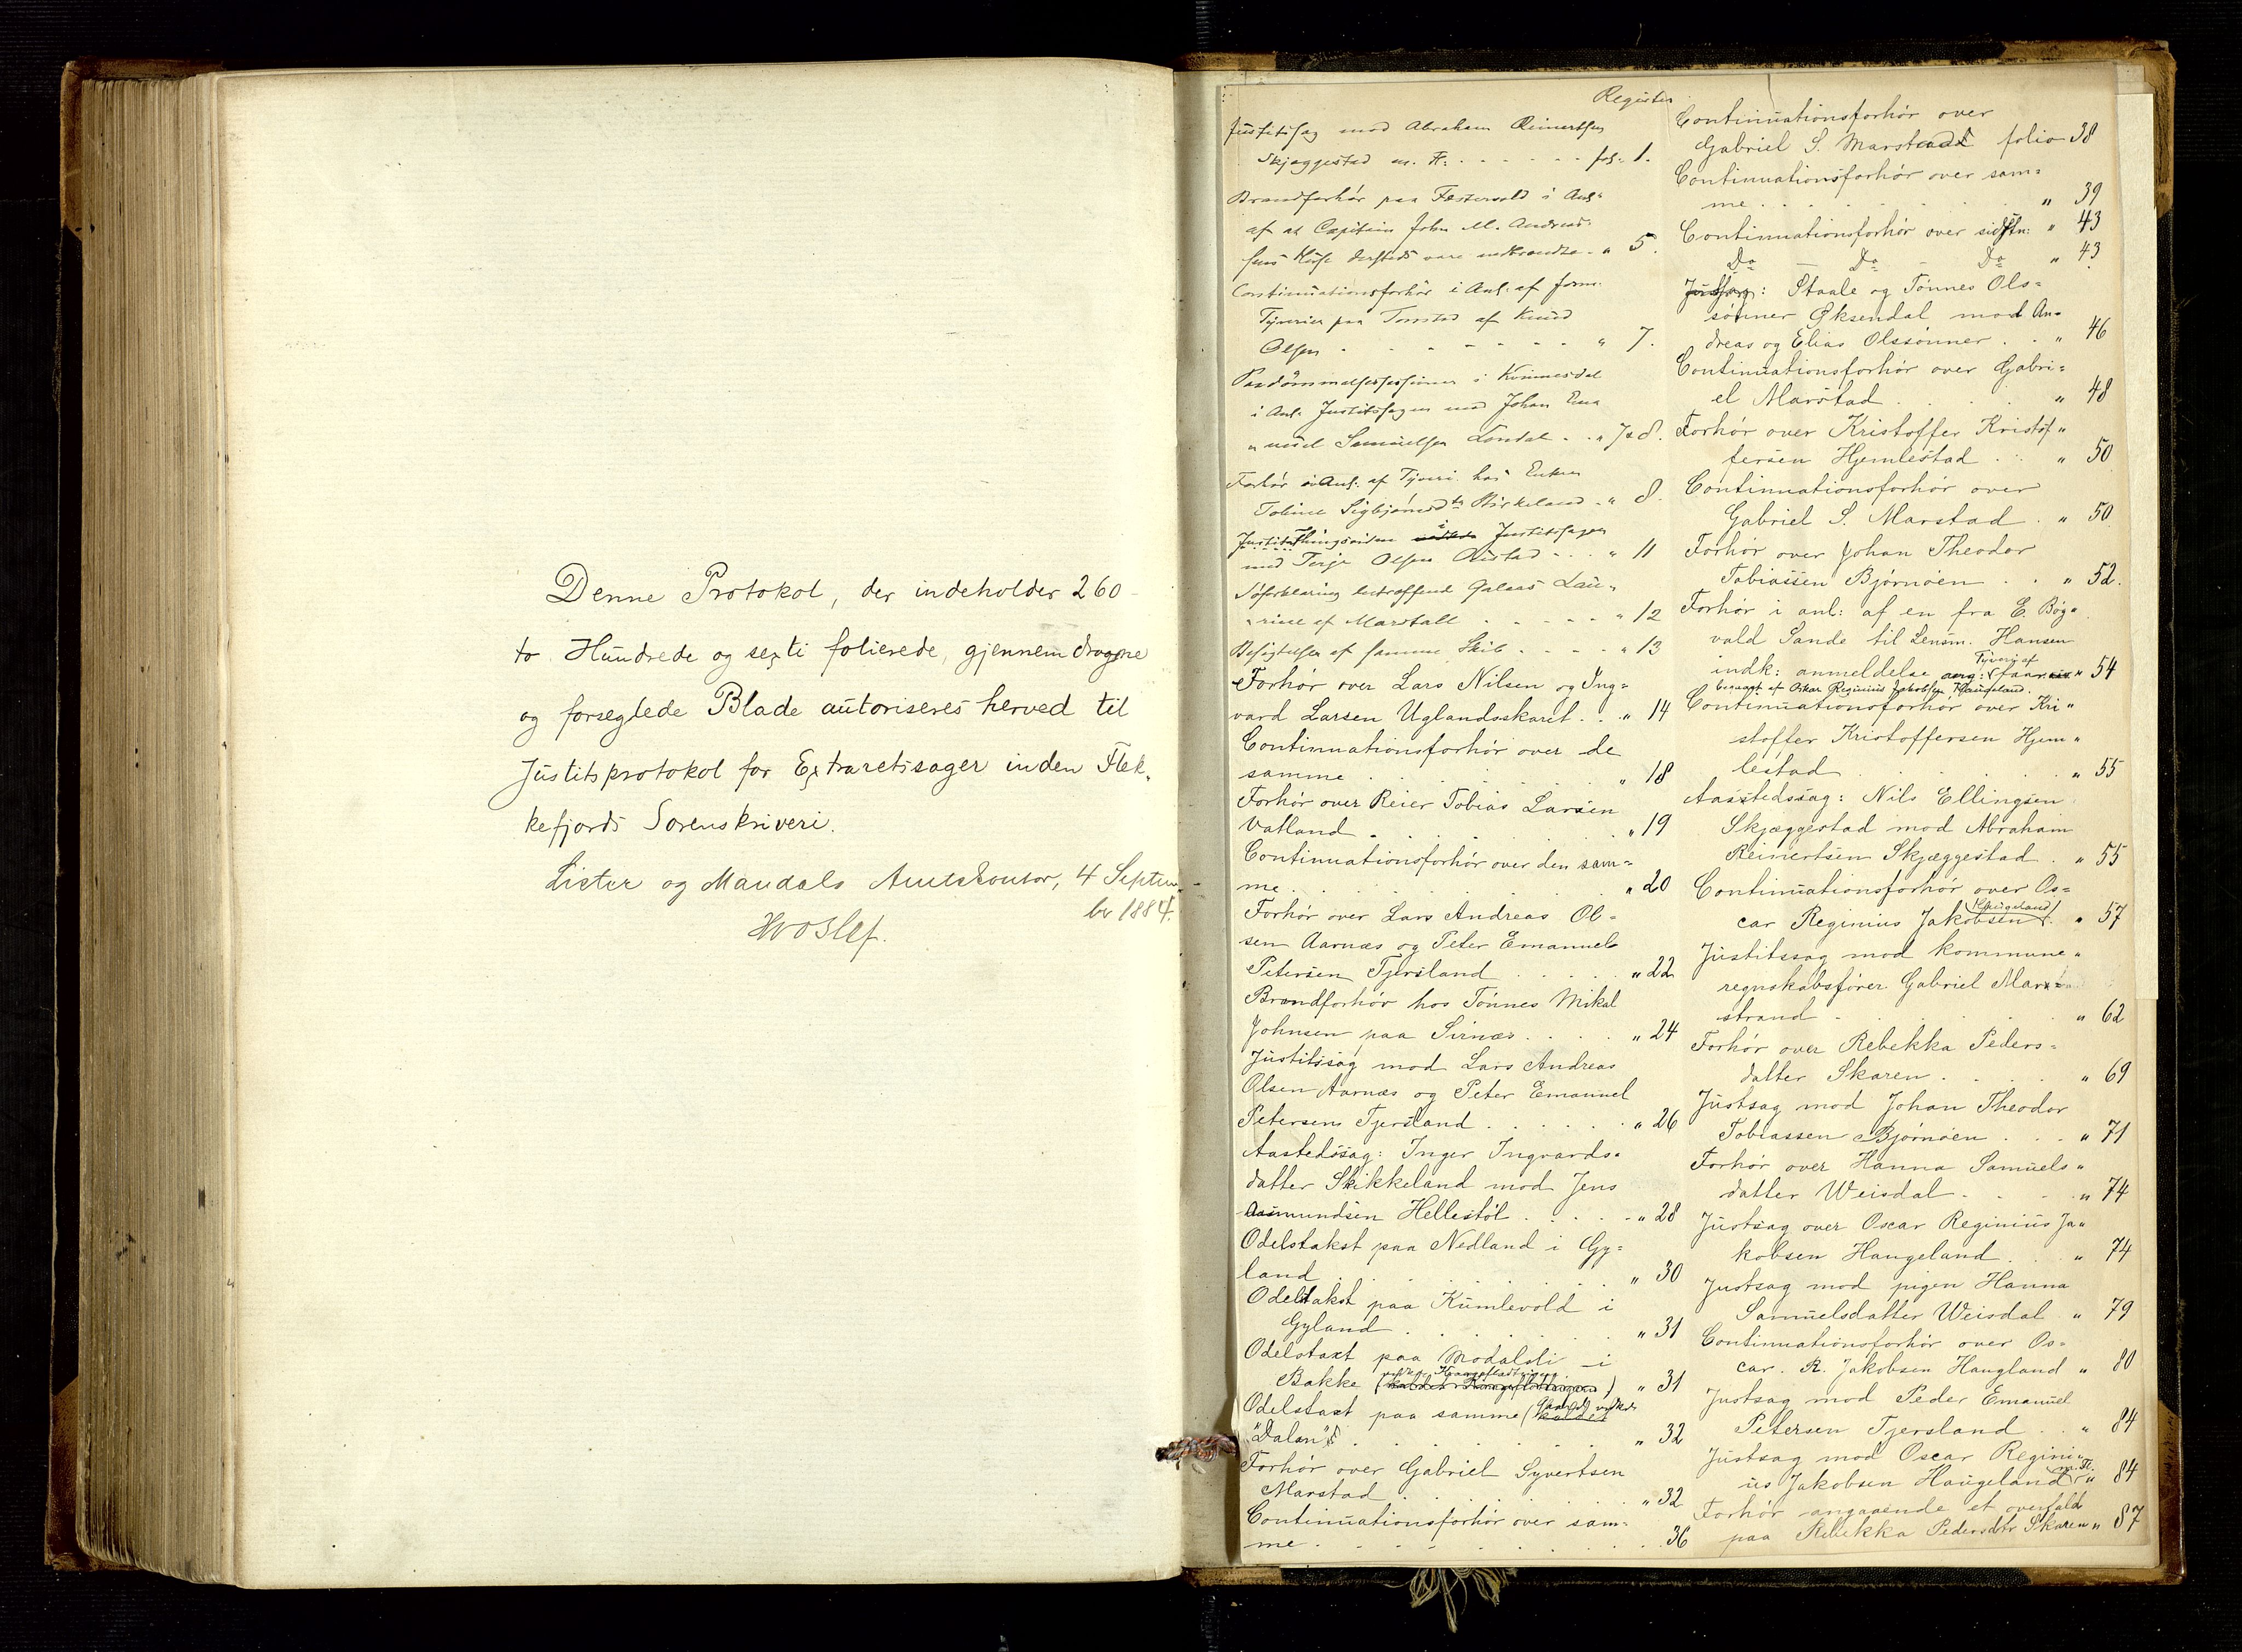 Denne Protokol, der indeholder 260
to Hundrede og sexti folierede, gjennemdragne
og forseglede Blade autoriseres herved til
Justitsprotokol for Extraretssager inden Flek„
kefjords Sorenskriveri.
Lister og Mandals Amtskontor, 4 Septem„
ber 1884.
Hroslef.
Register
Justitssag mod Abraham Reinertsen
Skjæggestad m. Fl: . . . . . . fol: 1.
Brandforhör paa Festervold i Anl:
af at Capitain John M. Andreas„
sens Huse dersteds vare nedbrændte - " 5.
Continuationsforhör i Anl: af form:
Tyverier paa Tonstad af Knud
Olsen . . . . . . . " 7.
i Kvinnesdal
i Anl: Justitssagen mod Johan Ema
„nuel Samuelsen - . " 7 & 8.
Forhör i Anl. af Tyveri hos Enken
Tobine Sigbjörnsdtr Birkeland - " 8.
Thingsvidne i Justitssagen
mod Terje Olsen - . . " 11
Söforklaring betræffende Galeas Lau„
„rine af Marstall . . . . . " 12
Besigtelsen af samme Skib . . . . " 13
Forhör over Lars Nilsen og Ing=
vard Larsen Uglandsskaret . . " 14
Continuationsforhör over de
samme . . . . . " 18
Forhör over Reier Tobias Larsen
Vatland . . . . . " 19
Continuationsforhör over den sam=
me . . . . . . " 20
Forhör over Lars Andreas Ol=
sen Aarnæs og Peter Emanuel
Petersen Tjersland . . . . . " 22
Brandforhör hos Tönnes Mikal
Johnsen paa Sirnæs . . . . " 24
Justitssag mod Lars Andreas
Olsen Aarnæs og Peter Emanuel
Petersen Tjersland . . . . . . " 26
Aastedssag: Inger Ingvards=
datter Skikkeland mod Jens
Aasmundsen Hellestöl . . . . . " 28
Odelstakst paa Nedland i Gy=
land . . . . . . . " 30
Odelstakst paa Kumlevold i
Gyland . . . . . . " 31
Odelstaxt paa Modalsli i
Bakke ( ) " 31
Odelstaxt paa samme (
"Dalen") . . . . . . . " 32
Forhör over Gabriel Syvertsen
Marstad . . . . . . . " 32
Continuationsforhör over sam=
me . . . . . . . . 36
Continuationsforhör over
Gabriel S. Marstad folio 38
Continuationsforhör over sam=
me . . . . . . . " 39
Continuationsforhör over sidstn: " 43
Do — Do - Do " 43
Justsag: Staale og Tönnes Ols=
sönner Øksendal mod An=
dreas og Elias Olssönner . . " 46
Continuationsforhör over Gabri=
el Marstad . . . . . " 48
Forhör over Kristoffer Kristof„
fersen Hjemlestad . . . " 50
Continuationsforhör over
Gabriel S. Marstad . " 50
Forhör over Johan Theodor
Tobiassen Bjørnøen . . " 52.
Forhör i anl: af en fra E. Bög„
vald Sande til Lensm. Hansen
indk: anmeldelse ang: Tyveri af faar " 54
begaaet af Oskar Reginius Jakobsen Haugeland.
Continuationsforhör over Kri„
stoffer Kristoffersen Hjem„
lestad . . . . . . " 55
Aasstedssag: Nils Ellingsen
Skjæggestad mod Abraham
Reinertsen Skjæggestad . " 55
Continuationsforhör over Os=
car Reginius Jakobsen Haugeland . " 57
Justitssag mod kommune„
regnskabsförer Gabriel Mar=
strand . . . . . . " 62
Forhör over Rebekka Peders=
datter Skaren . . . . " 69
Justsag mod Johan Theodor
Tobiassen Bjørnøen . . . " 71
Forhör over Hanna Samuels„
datter Weisdal . . . . " 74
Justsag over Oscar Reginius Ja„
kobsen Haugeland . . " 74
Justsag mod pigen Hanna
Samuelsdatter Weisdal " 79
Continuationsforhör over Os=
car. R. Jakobsen Haugland " 80
Justsag mod Peder Emanuel
Petersen Tjersland . . " 84
Justsag mod Oscar Regini„
us Jakobsen Haugeland m. Fl. " 84
Forhör angaaende et overfald
paa Rebekka Pedersdtr Skaren " 87